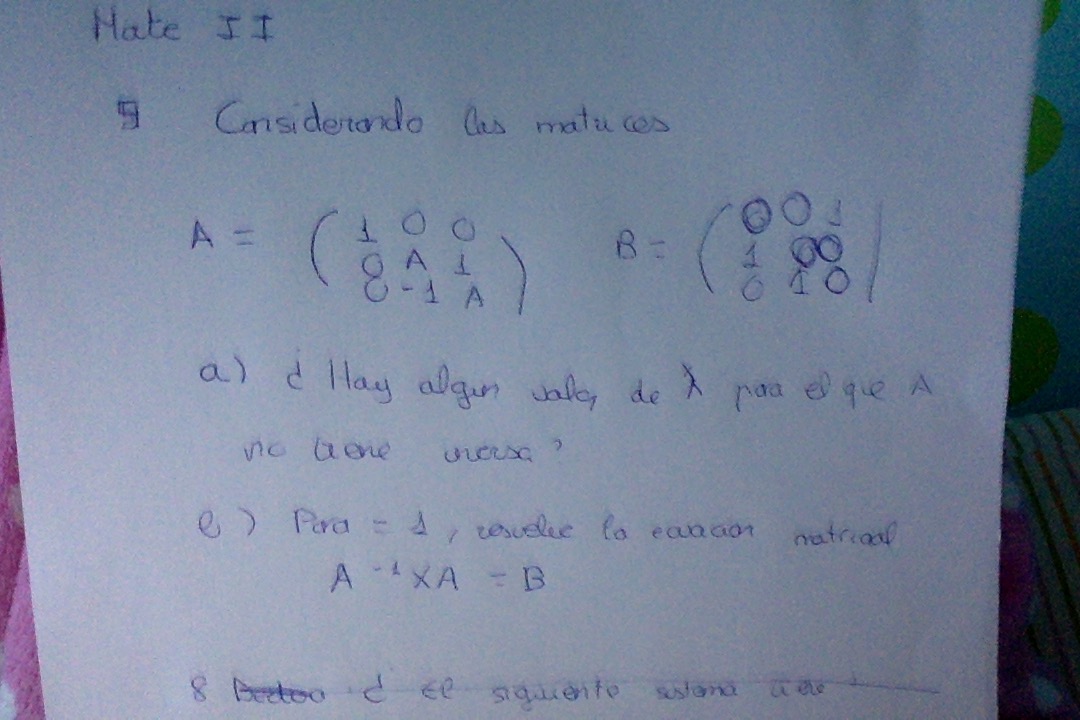 Mate II
9 Considerando las matrices
A = ( 1 0 0
0 A 1
0 -1 A )
B = ( 0 0 1
1 0 0
0 1 0 |
a) ¿ Hay algun valor de λ para el que A
no tiene inversa?
e) Para = 1, resuelve la ecuacion matricial
A⁻¹XA = B
8 ¿ El siguiente sistema tiene